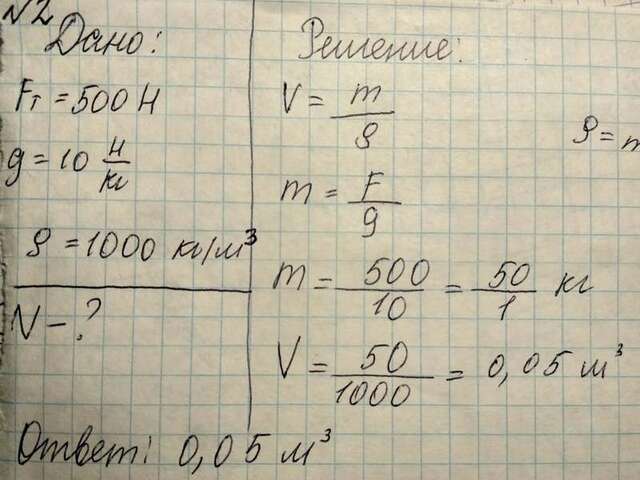 №2
Дано:
Fт = 500 Н
g = 10 Н/кг
ρ = 1000 кг/м³
V - ?
Решение:
V = m/ρ
ρ = m
m = F/g
m = 500/10 = 50/1 кг
V = 50/1000 = 0,05 м³
Ответ: 0,05 м³